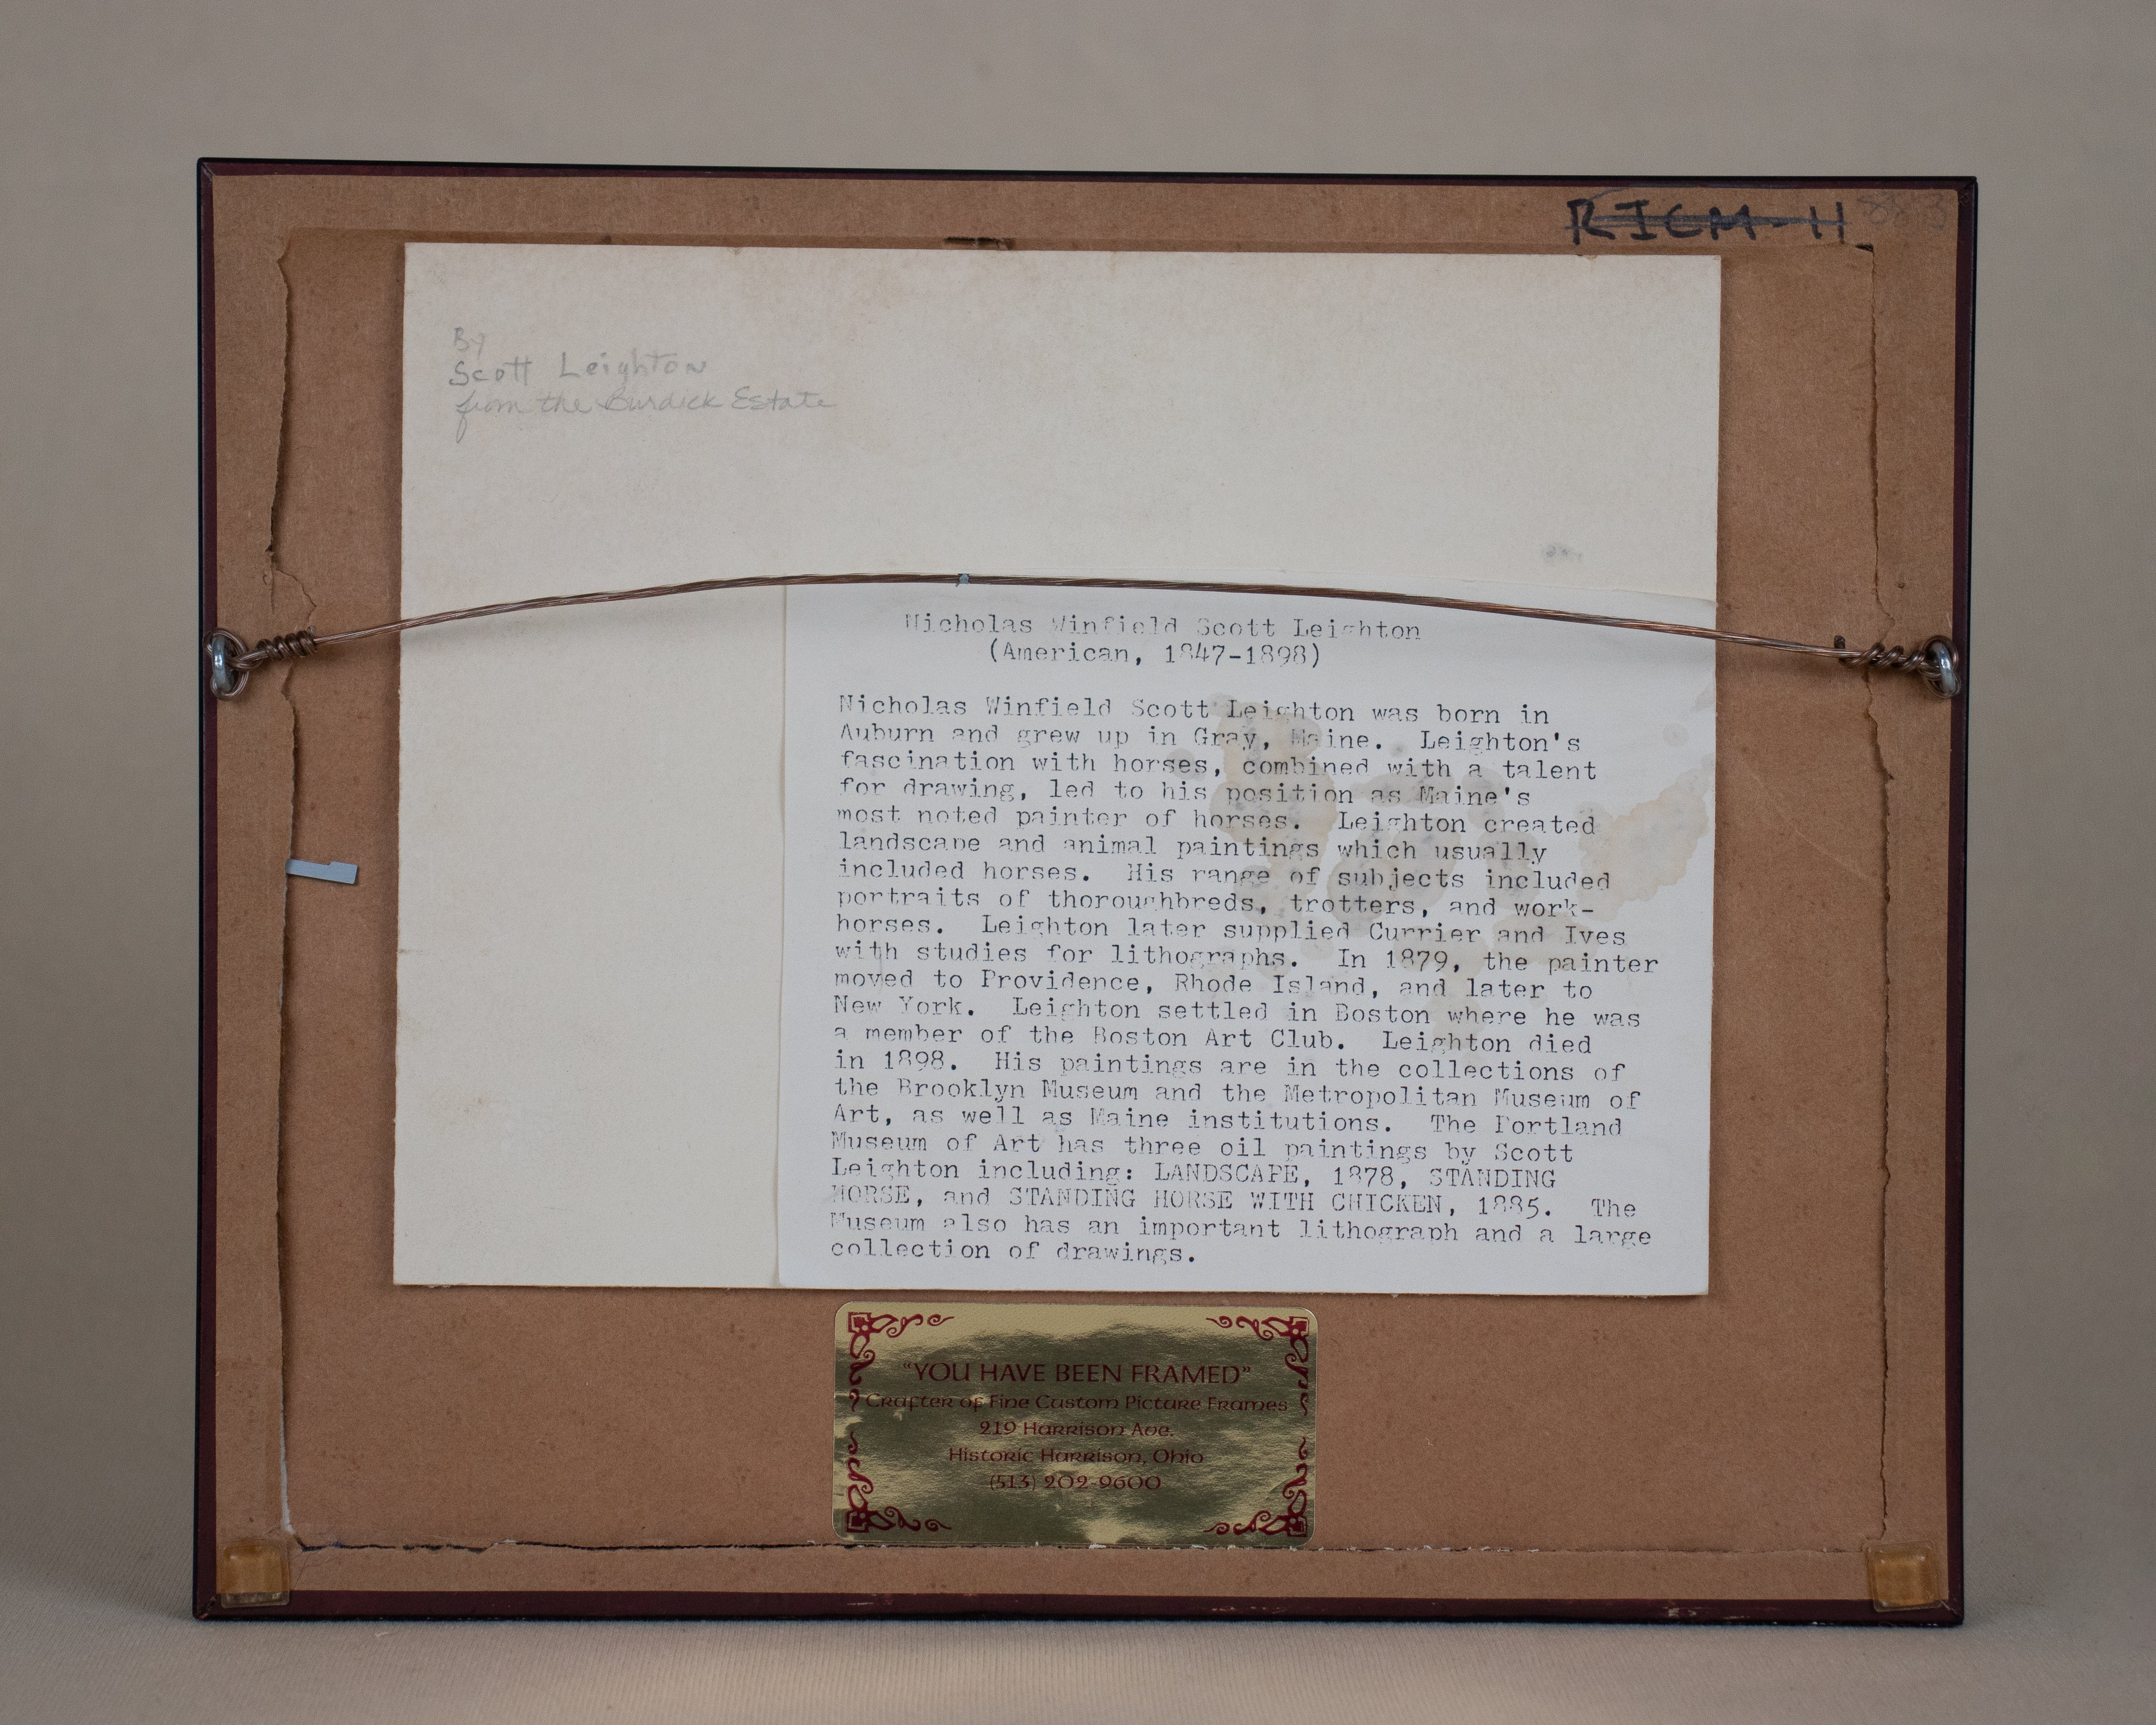 RICM-H
883
By
Scott Leighton
from the Burdick Estate
Nicholas Winfield Scott Leighton
(American, 1847-1898)
Nicholas Winfield Scott Leighton was born in
Auburn and grew up in Gray, Maine. Leighton's
fascination with horses, combined with a talent
for drawing, led to his position as Maine's
most noted painter of horses. Leighton created
landscape and animal paintings which usually
included horses. His range of subjects included
portraits of thoroughbreds, trotters, and work-
horses. Leighton later supplied Currier and Ives
with studies for lithographs. In 1879, the painter
moved to Providence, Rhode Island, and later to
New York. Leighton settled in Boston where he was
a member of the Boston Art Club. Leighton died
in 1898. His paintings are in the collections of
the Brooklyn Museum and the Metropolitan Museum of
Art, as well as Maine institutions. The Portland
Museum of Art has three oil paintings by Scott
Leighton including: LANDSCAPE, 1878, STANDING
HORSE, and STANDING HORSE WITH CHICKEN, 1885. The
Museum also has an important lithograph and a large
collection of drawings.
"YOU HAVE BEEN FRAMED"
Crafter of Fine Custom Picture Frames
219 Harrison Ave.
Historic Harrison, Ohio
(513) 202-9600